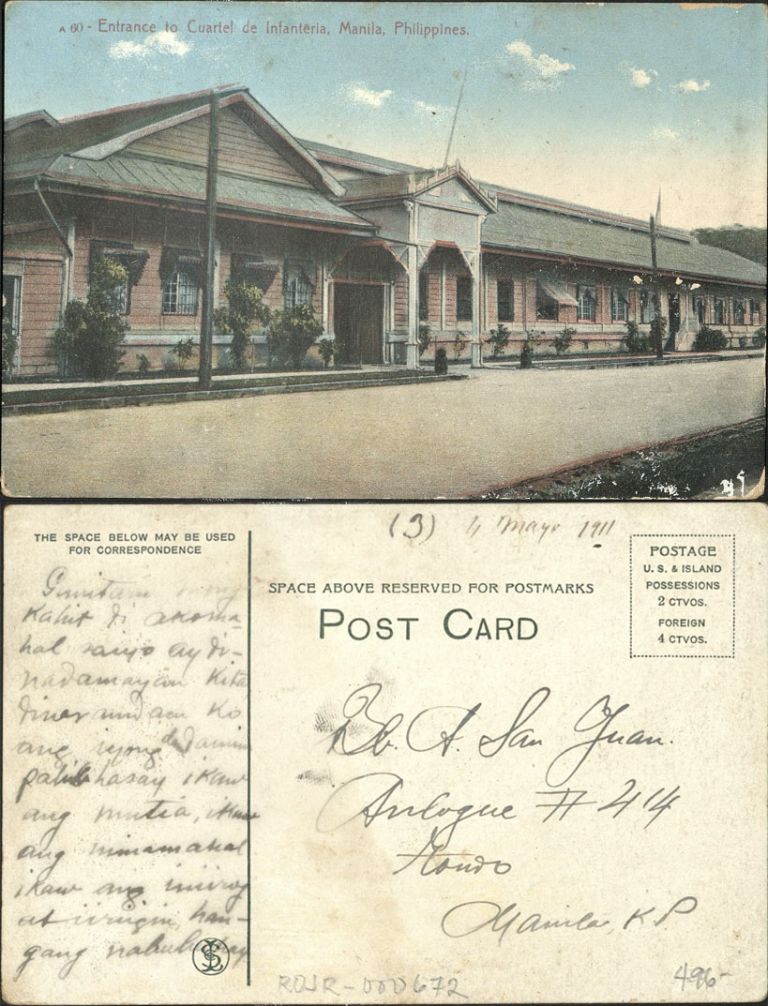 A 60 - Entrance to Cuartel de Infanteria, Manila, Philippines.
THE SPACE BELOW MAY BE USED
FOR CORRESPONDENCE
(3) 4 Mayo 1911
SPACE ABOVE RESERVED FOR POSTMARKS
POST CARD
POSTAGE
U. S. & ISLAND
POSSESSIONS
2 CTVOS.
FOREIGN
4 CTVOS.
Kahit di akoma
hal saiyo ay di-
nadamayan kita
ko
ang iyong
ikaw
ang mutia, ikaw
ang minamahal
ikaw ang
at han-
gang
Bb. A. San Juan.
Anloague # 414
Tondo
Manila, K.P
ROJR-000672
496-